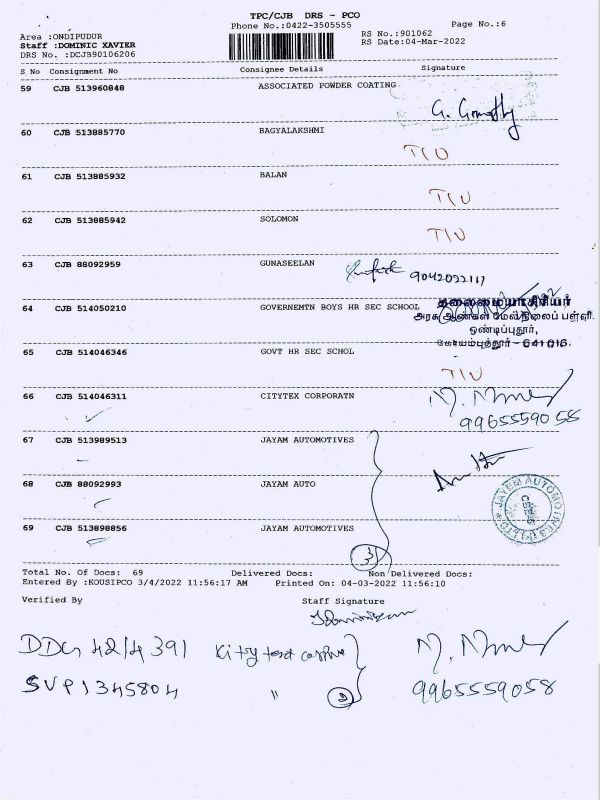 TPC/CJB DRS - PCO
Phone No.:0422-3505555
Page No.:6
Area :ONDIPUDUR
RS No.:901062
Staff :DOMINIC XAVIER
RS Date:04-Mar-2022
DRS No. :DCJB90106206
S No Consignment No Consignee Details Signature
59 CJB 513960848 ASSOCIATED POWDER COATING
60 CJB 513885770 BAGYALAKSHMI
T/U
61 CJB 513885932 BALAN
T/U
62 CJB 513885942 SOLOMON
T/U
63 CJB 88092959 GUNASEELAN
9042022117
64 CJB 514050210 GOVERNEMTN BOYS HR SEC SCHOOL
தலைமையாசிரியர்
அரசு ஆண்கள் மேல்நிலைப் பள்ளி.
ஒண்டிப்புதூர்,
கோயம்புத்தூர் - 641 016.
65 CJB 514046346 GOVT HR SEC SCHOL
T/U
66 CJB 514046311 CITYTEX CORPORATN
9965559058
67 CJB 513989513 JAYAM AUTOMOTIVES
68 CJB 88092993 JAYAM AUTO
JAYEM AUTOMOTIVES (P) LTD
69 CJB 513898856 JAYAM AUTOMOTIVES
3
Total No. Of Docs: 69 Delivered Docs: Non Delivered Docs:
Entered By :KOUSIPCO 3/4/2022 11:56:17 AM Printed On: 04-03-2022 11:56:10
Verified By Staff Signature
DDG 4214391
SVP1345804 "
2
9965559058